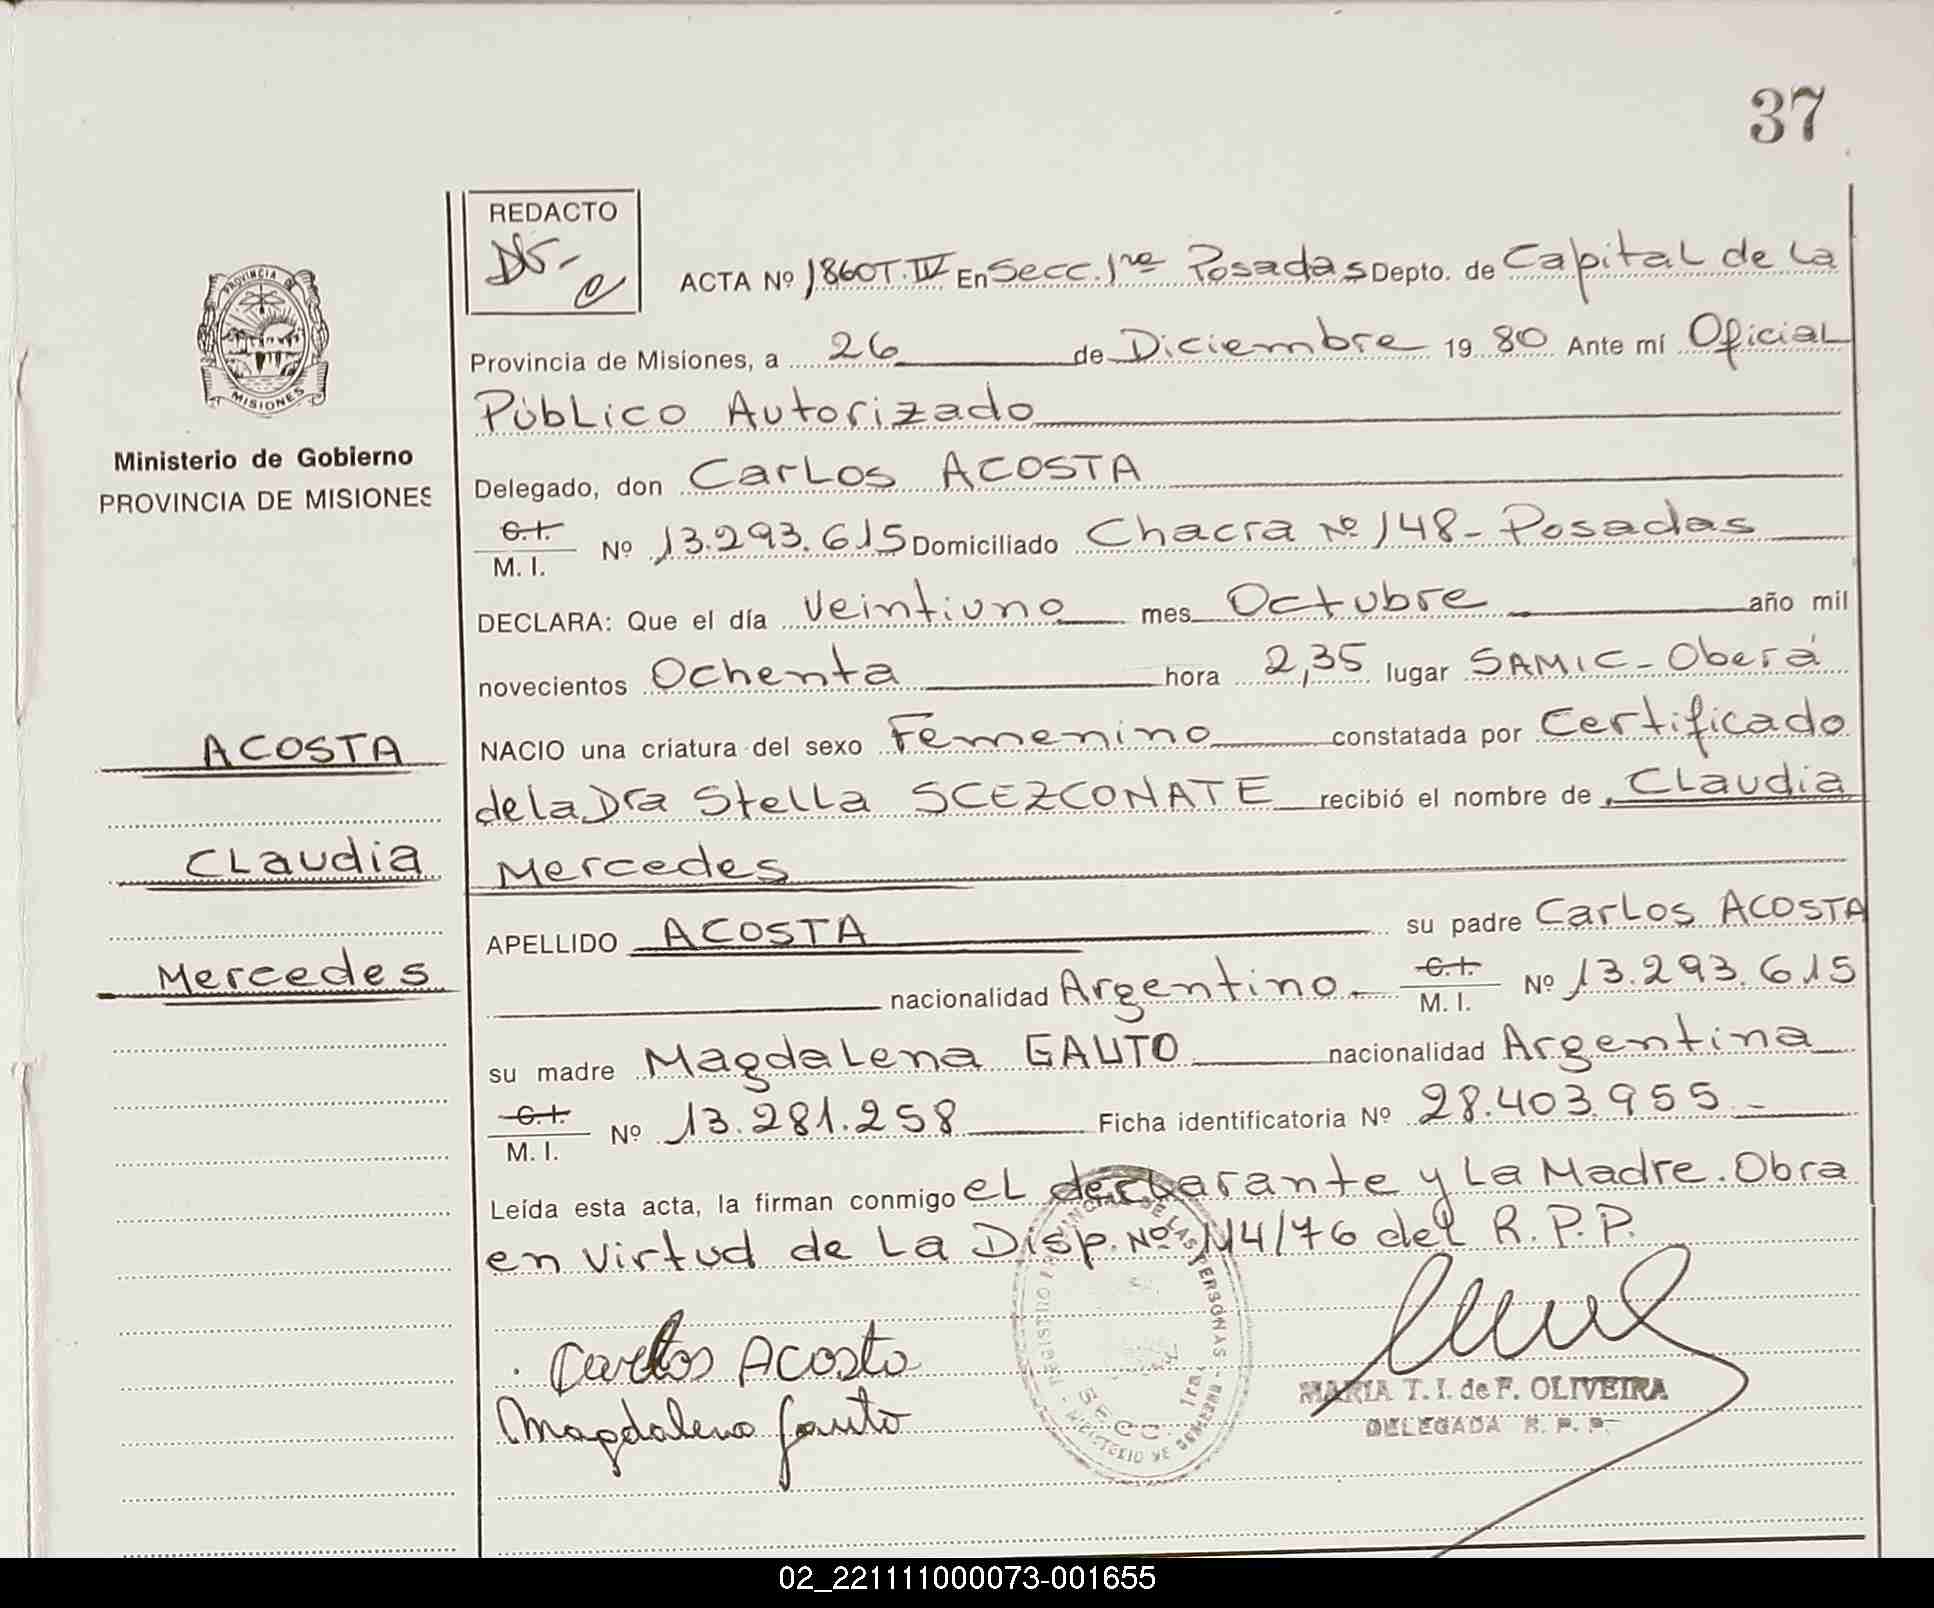 37
REDACTO
ACTA Nº 1860 T. IV En Secc. 1ra Posadas Depto. de Capital de la
Provincia de Misiones, a 26 de Diciembre 1980 Ante mí Oficial
Público Autorizado
Delegado, don Carlos ACOSTA
C.I.
M. I. Nº 13.293.615 Domiciliado Chacra Nº 148 - Posadas
DECLARA: Que el día Veintiuno mes Octubre año mil
novecientos Ochenta hora 2,35 lugar SAMIC - Oberá
NACIO una criatura del sexo Femenino constatada por Certificado
de la Dra Stella SCEZCONATE recibió el nombre de Claudia
Mercedes
APELLIDO ACOSTA su padre Carlos ACOSTA
nacionalidad Argentino - C.I.
M. I. Nº 13.293.615
su madre Magdalena GAUTO nacionalidad Argentina
C.I.
M. I. Nº 13.281.258 Ficha identificatoria Nº 28.403.955 -
Leída esta acta, la firman conmigo el declarante y la Madre. Obra
en virtud de la Disp. Nº 114/76 del R.P.P.
Carlos Acosta
Magdalena Gauto
REGISTRO PROVINCIAL DE LAS PERSONAS
SECC. 1ra.
MINISTERIO DE GOBIERNO
MARIA T. I. de F. OLIVEIRA
DELEGADA R. P. P.
PROVINCIA
MISIONES
Ministerio de Gobierno
PROVINCIA DE MISIONES
ACOSTA
Claudia
Mercedes
02_221111000073-001655